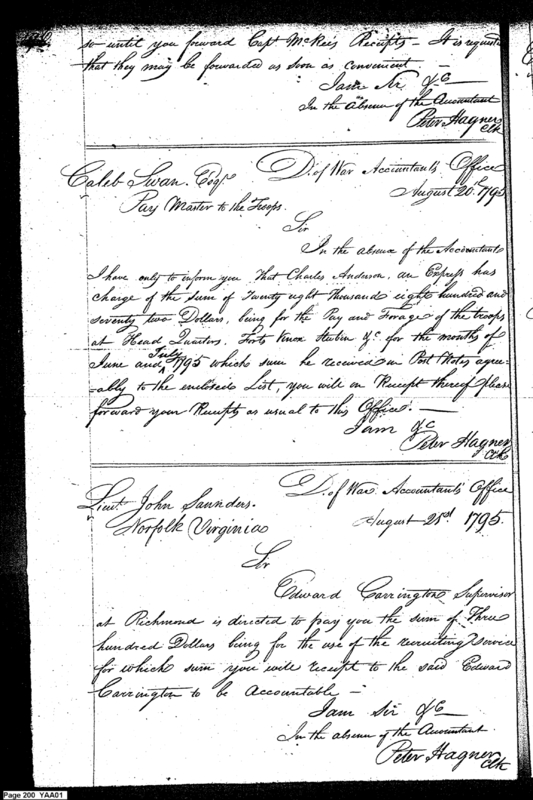 so until you forward Capt McKees Receipts – It is requested
that they may be forwarded as soon as convenient. –
I am Sir &C
In the absence of the Accountant
Peter Hagner
Clk
Caleb Swan. Esqr
D. of War Accountants Office
August 20th 1795
Pay Master to the Troops.
Sir
In the absence of the Accountant
I have only to inform you That Charles Anderson, an Express has
charge of the sum of Twenty eight thousand eight hundred and
seventy two Dollars, being for the Pay and Forage of the troops
at Head Quarters, Forts Knox Steuben &c. for the months of
June and July 1795 which sum he received in Post Notes agre-
-ably to the enclosed List, you will on Receipt thereof please
forward your Receipts as usual to this Office. –
I am &C
Peter Hagner
Clk
Lieut. John Saunders.
D. of War Accountants Office
Norfolk Virginia
August 21st 1795.
Sir
Edward Carrington Supervisor
at Richmond is directed to pay you the sum of Three
hundred Dollars being for the use of the recruiting service
for which sum you will receipt to the said Edward
Carrington to be Accountable –
I am Sir &C
In the absence of the Accountant
Peter Hagner
Clk
Page 200 YAA01